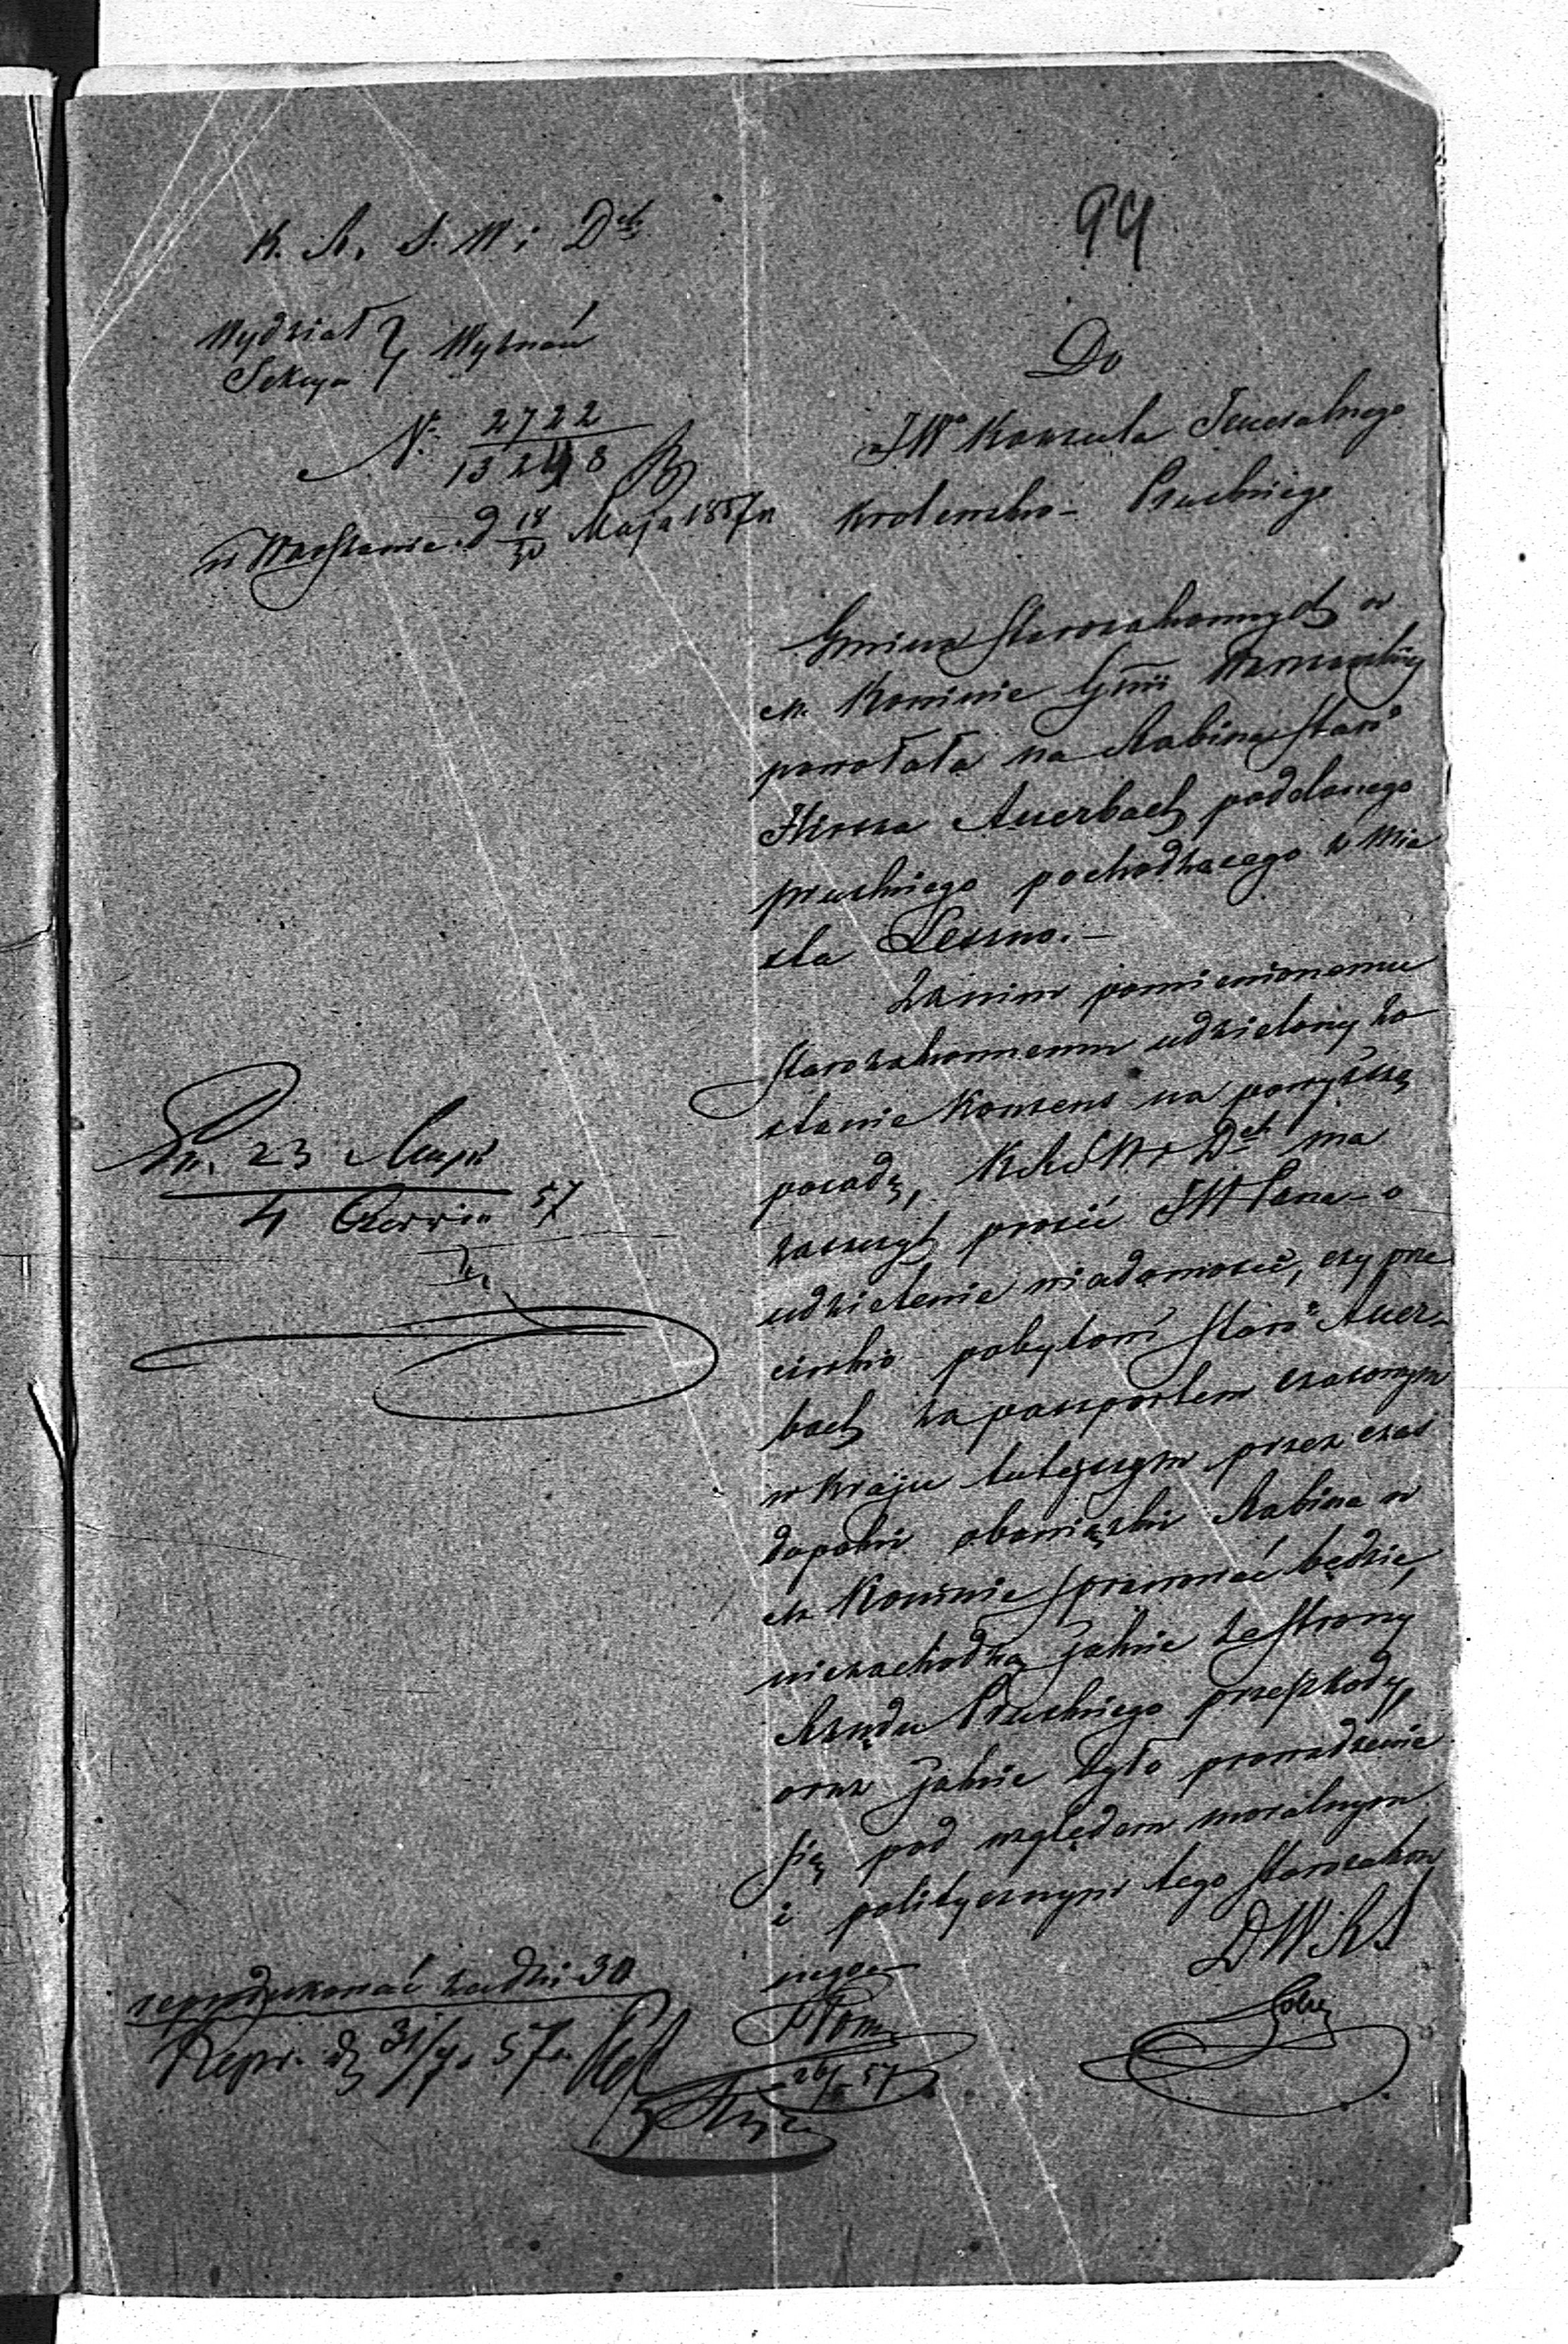 94
K. R. S. W. i Dch
Wydział } Wyznań
Sekcya
N. 2722
13248
w Warszawie d 18/30 Maja 1857 r
Do
JWo Konsula Jeneralnego
Krolewsko - Pruskiego
Gmina Starozakonnych w
m. Koninie Gmii Warszawskiej
powołała na Rabina Staro
Hirsza Auerbach poddanego
pruskiego pochodzącego z mia
sta Leszno. -
Zanim pomienionemu
Starozakonnemu udzielony zo
stanie Konsens na powyższą
posadę, KRSW i Dch ma
zaszczyt prosić JW Pana - o
udzielenie wiadomości, czy prze
ciwko pobytowi Staro Auer-
bach za paszportem czasowym
w Kraju tutejszym przez czas
dopóki obowiązki Rabina w
m. Koninie sprawować będzie,
niezachodzą jakie ze Strony
Rządu Pruskiego przeszkody,
oraz jakie było prowadzenie
się pod względem moralnym
i politycznym tego Starozakon
nego. -
DWRS
26/5 57
23 Maja
4 Czerwca 57
reprodukować za dni 30
Repr. d 31/7 57 r.